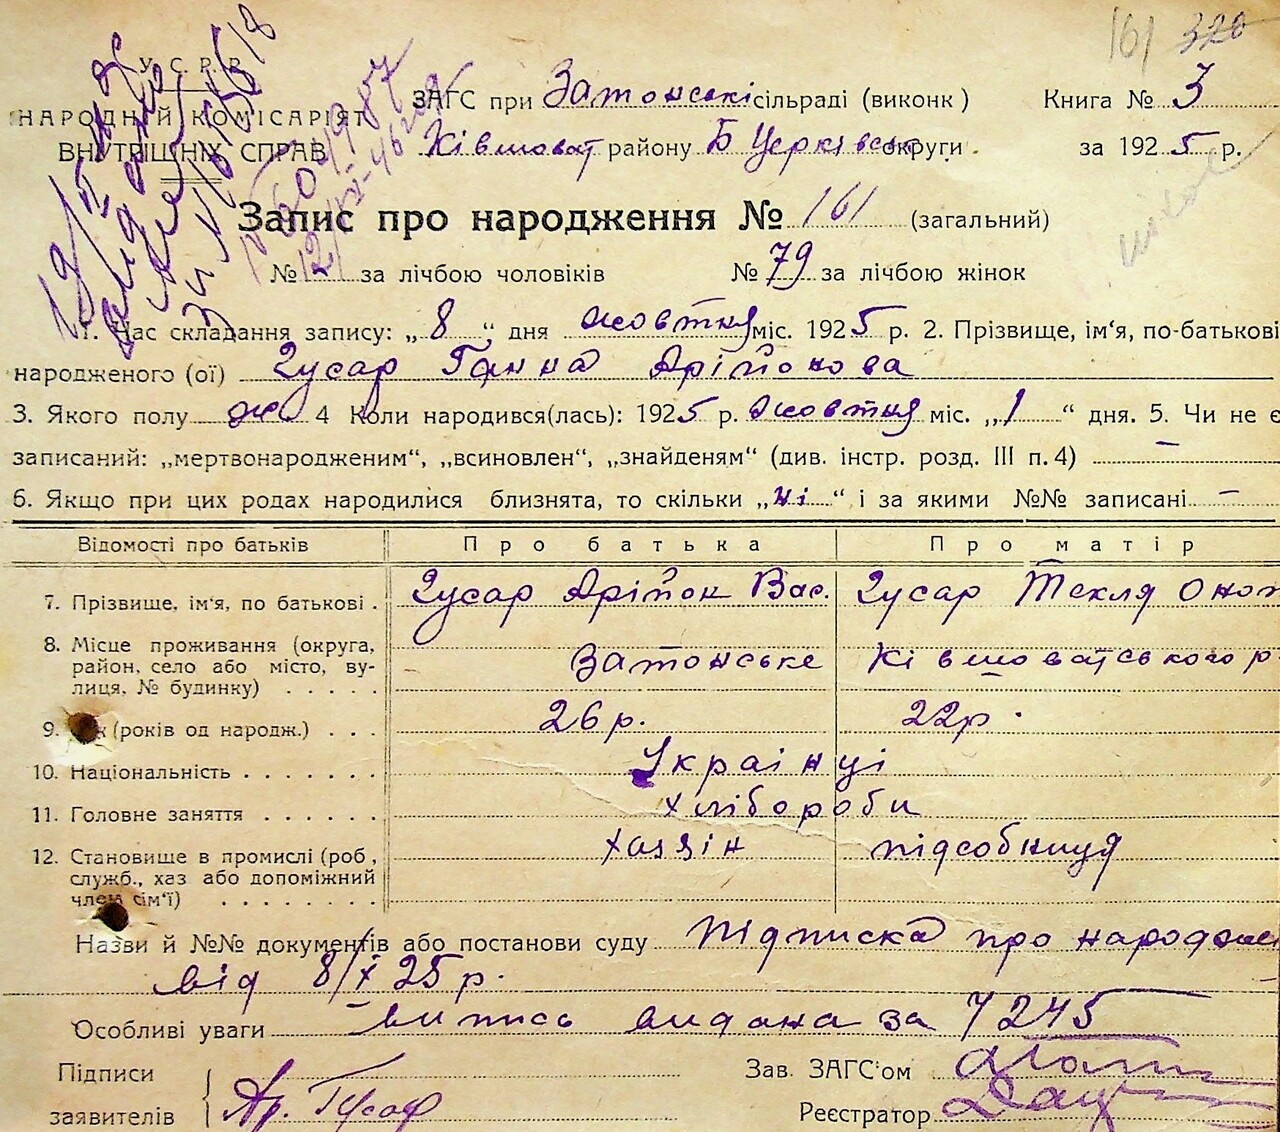 161 320
У. С. Р. Р.
НАРОДНІЙ КОМІСАРІЯТ
ВНУТРІШНІХ СПРАВ
ЗАГС при Затонські сільраді (виконк) Книга № 3
Ківшоват району Б Церківсько округи за 1925 р.
Запис про народження № 161 (загальний)
№ за лічбою чоловіків № 79 за лічбою жінок
1. Час складання запису: „8“ дня жовтня міс. 1925 р. 2. Прізвище, ім'я, по-батькові
народженого (ої) Гусар Ганна Арійонова
3. Якого полу ж 4 Коли народився(лась): 1925 р. жовтня міс. „1“ дня. 5. Чи не є
записаний: „мертвонародженим“, „всиновлен“, „знайденям“ (див. інстр. розд. III п. 4) –
6. Якщо при цих родах народилися близнята, то скільки „ні“ і за якими №№ записані –
Відомості про батьків Про батька Про матір
7. Прізвище, ім'я, по батькові . Гусар Арійон Вас. Гусар Текля Оноп
8. Місце проживання (округа,
район, село або місто, вулиця, № будинку) . . . . . Затонське Ківшоватського р
9. (років од народж.) . . . 26 р. 22 р.
10. Національність . . . . . . . Українці
11. Головне заняття . . . . . . хлібороби
12. Становище в промислі (роб,
служб., хаз або допоміжний
член сім'ї) . . . . . . . . хазяін підсобниця
Назви й №№ документів або постанови суду Підписка про народжен
від 8/X 25 р.
Особливі уваги випись видана за 7245
Підписи
заявителів Ар. Гусар
Зав. ЗАГС'ом
Реєстратор